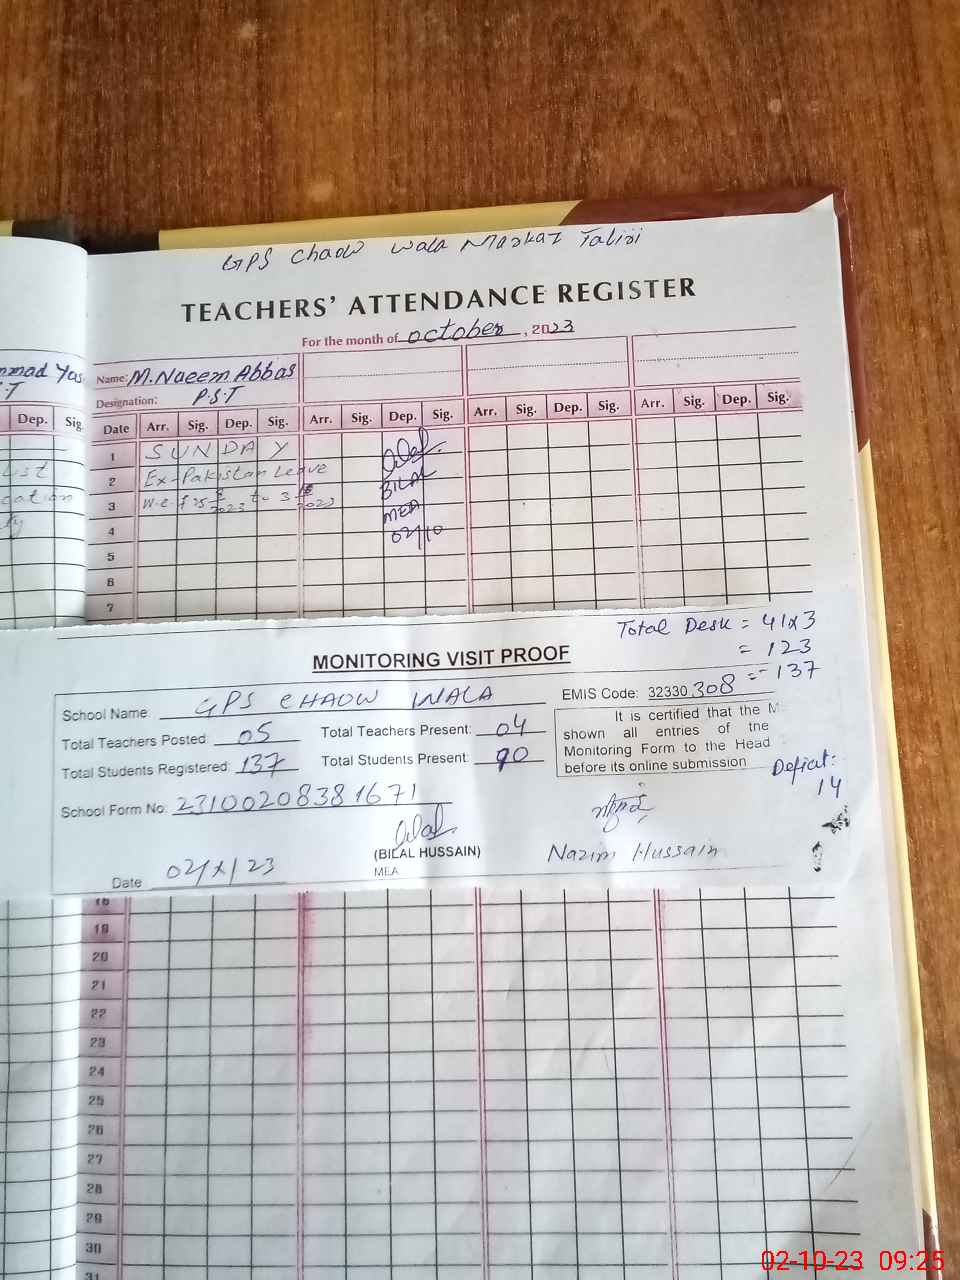 GPS Chaow Wala Markaz Taliri
TEACHERS' ATTENDANCE REGISTER
For the month of October, 2023
mmad Yas
S.T
Name: M. Naeem Abbas
Designation: P.S.T
Dep. Sig.
Date Arr. Sig. Dep. Sig. Arr. Sig. Dep. Sig. Arr. Sig. Dep. Sig. Arr. Sig. Dep. Sig.
1 SUNDAY
2 Ex-Pakistan Leave
3 w.e.f 2023 to 2023
BILAL
MEA
02/10
4
5
6
7
Total Desk = 41x3
= 123
= - 137
Deficit:
14
MONITORING VISIT PROOF
School Name: GPS CHAOW WALA
EMIS Code: 32330 308
Total Teachers Posted: 05 Total Teachers Present: 04
Total Students Registered: 137 Total Students Present: 90
It is certified that the M
shown all entries of the
Monitoring Form to the Head
before its online submission
School Form No: 23100208381671
(BILAL HUSSAIN)
MEA
Nazim Hussain
Date 02/X/23
18
19
20
21
22
23
24
25
26
27
28
29
30
31
02-10-23 09:25